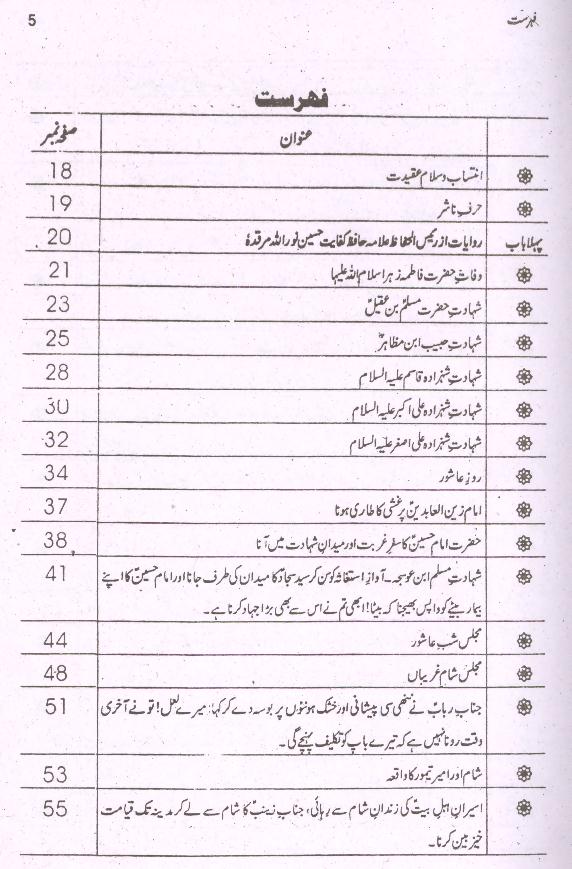 فہرست 5
فہرست
عنوان صفحہ نمبر
انتساب و سلام عقیدت 18
حرفِ ناشر 19
پہلا باب روایات از رئیس الحفاظ علامہ حافظ کفایت حسین نور اللہ مرقدہٗ 20
وفاتِ حضرت فاطمہ زہرا سلام اللہ علیہا 21
شہادتِ حضرت مسلمؑ بن عقیلؑ 23
شہادتِ حبیب ابن مظاہرؑ 25
شہادتِ شہزادہ قاسم علیہ السلام 28
شہادتِ شہزادہ علی اکبر علیہ السلام 30
شہادتِ شہزادہ علی اصغر علیہ السلام 32
روزِ عاشور 34
امام زین العابدینؑ پر غشی کا طاری ہونا 37
حضرت امام حسینؑ کا سفرِ غربت اور میدانِ شہادت میں آنا 38
شہادتِ مسلم ابن عوسجہ۔ آوازِ استغاثہ کو سن کر سید سجادؑ کا میدان کی طرف جانا اور امام حسینؑ کا اپنے 41
بیمار بیٹے کو واپس بھیجنا کہ بیٹا! ابھی تم نے اس سے بھی بڑا جہاد کرنا ہے۔
مجلس شبِ عاشور 44
مجلس شامِ غریباں 48
جناب ربابؑ نے ننھی سی پیشانی اور خشک ہونٹوں پر بوسہ دے کر کہا: میرے لعل! تو نے آخری 51
وقت رونا نہیں ہے کہ تیرے باپ کو تکلیف پہنچے گی۔
شام اور امیر تیمور کا واقعہ 53
اسیرانِ اہلِ بیتؑ کی زندانِ شام سے رہائی، جناب زینبؑ کا شام سے لے کر مدینہ تک قیامت 55
خیز بین کرنا۔